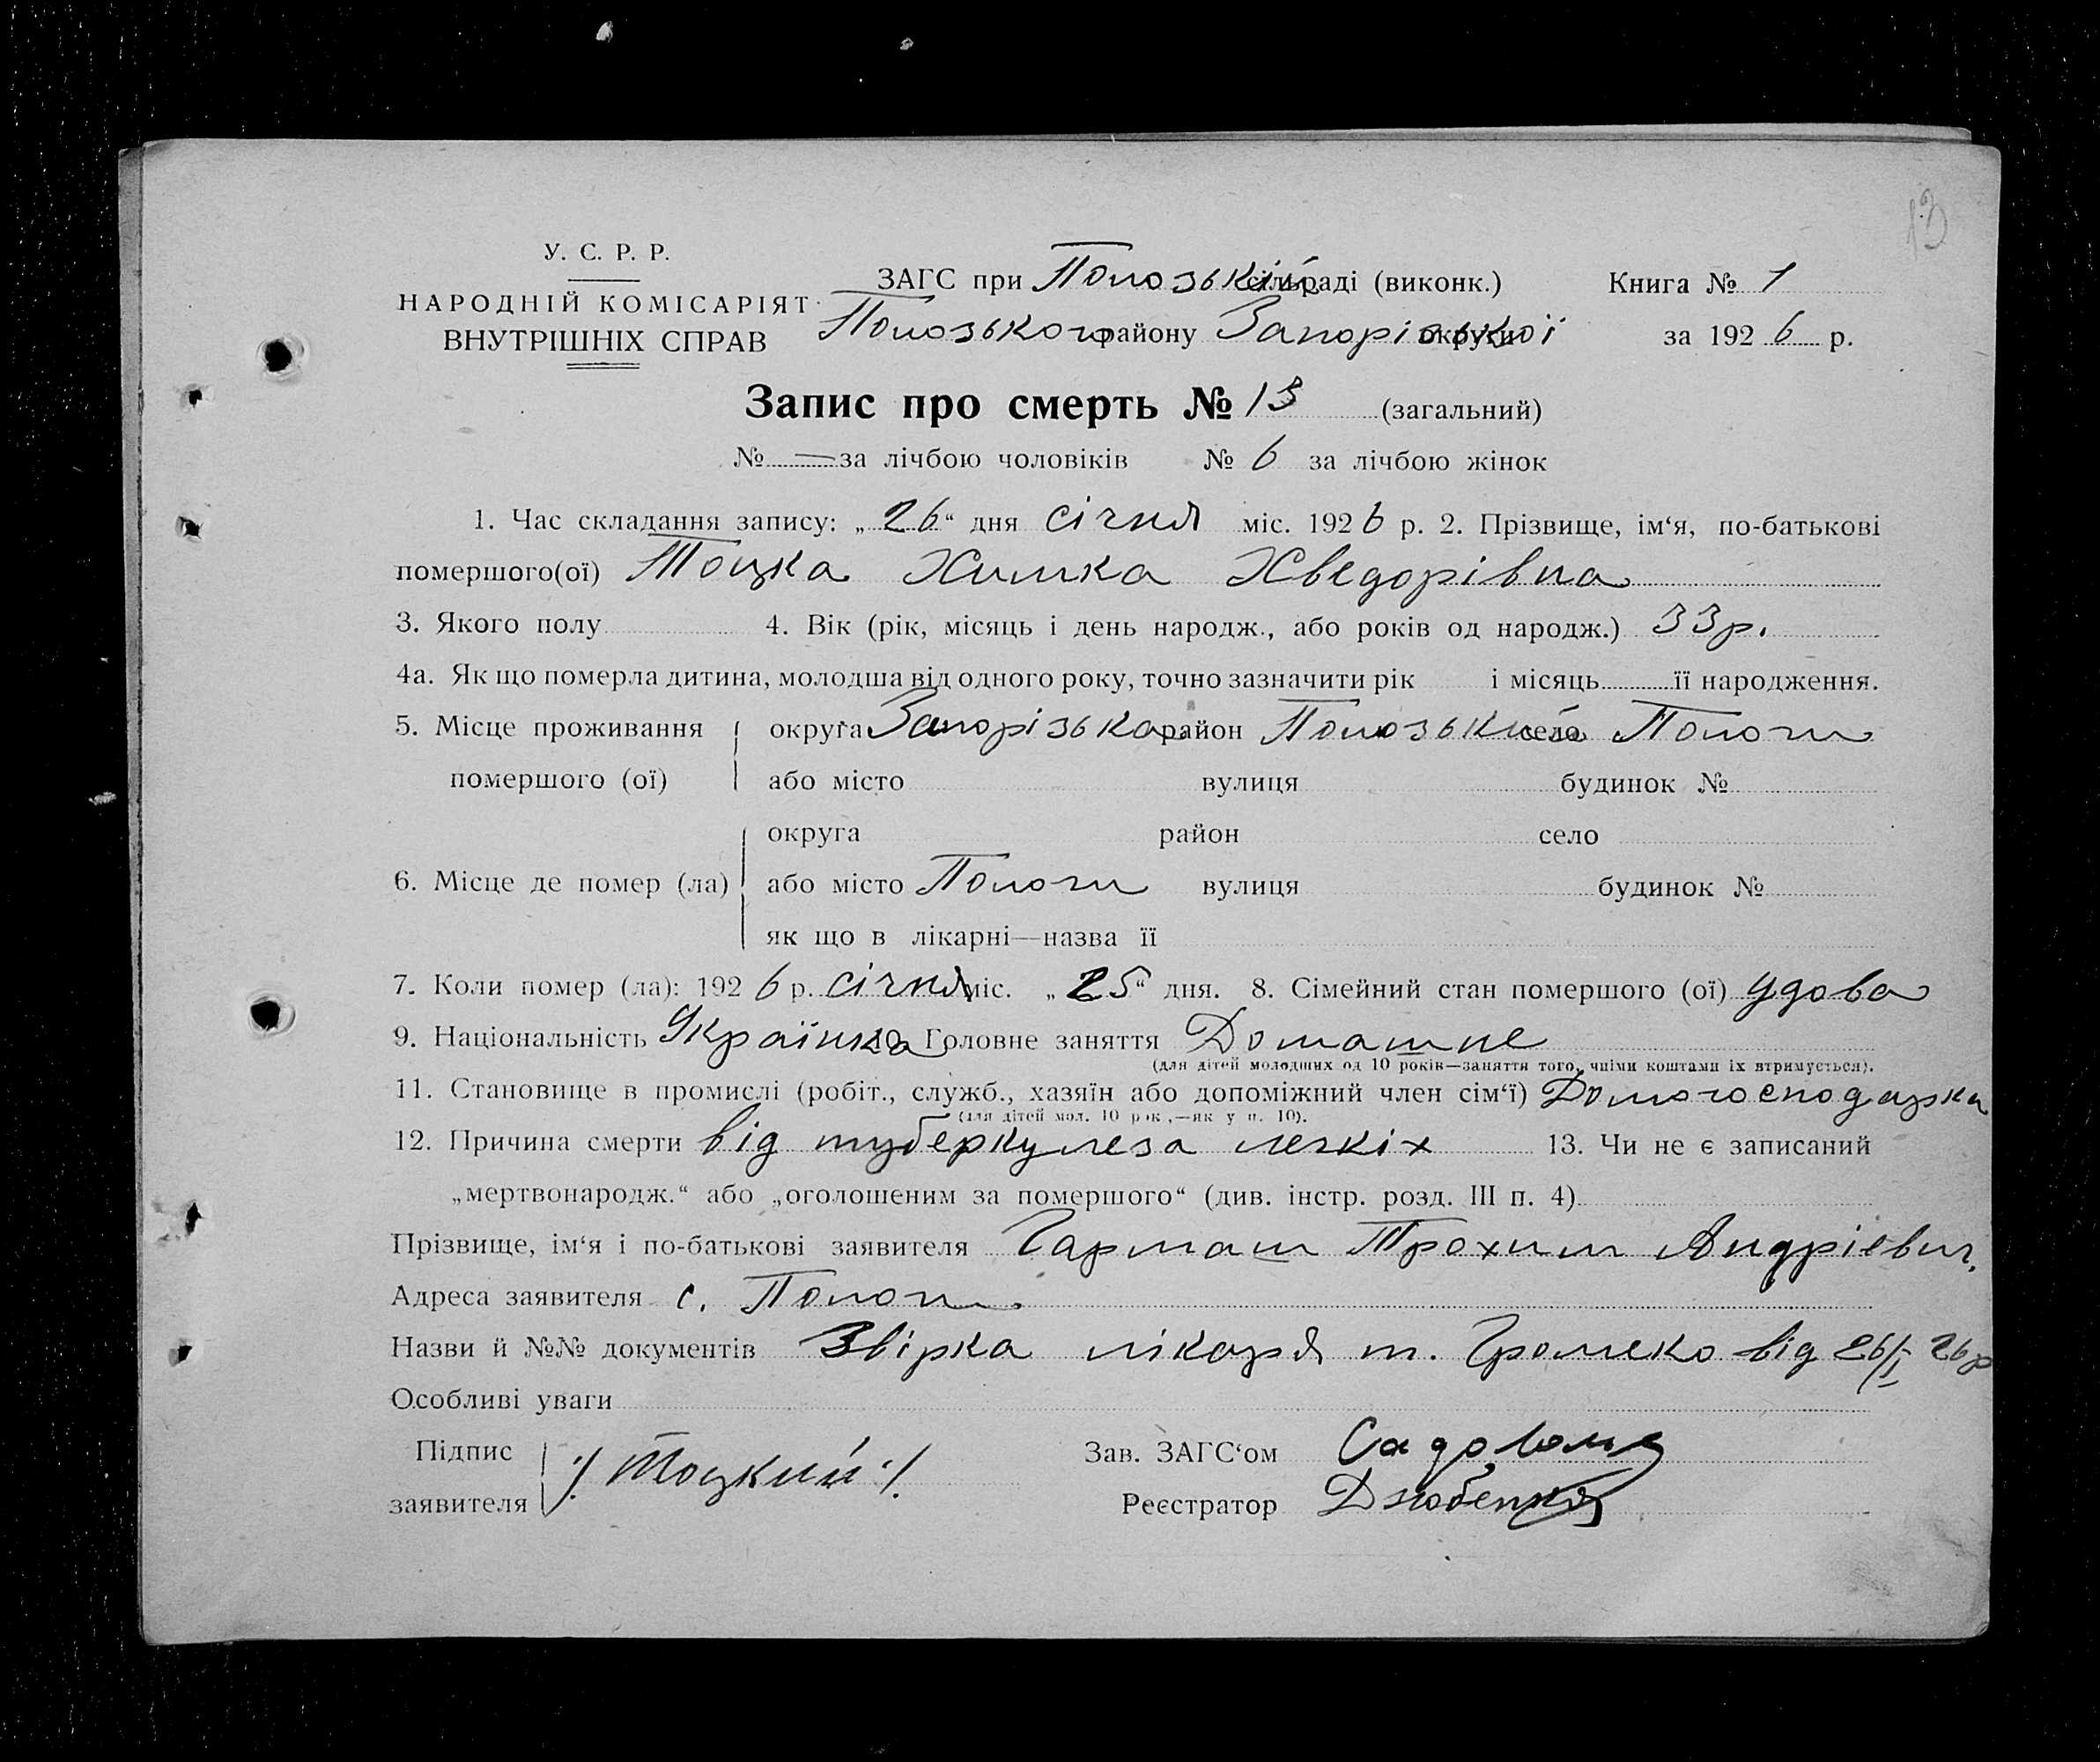 13
У. С. Р. Р.
НАРОДНІЙ КОМІСАРІЯТ
ВНУТРІШНІХ СПРАВ
ЗАГС при Пологській сільраді (виконк.)
Пологського району Запорізької округи
Книга № 1
за 1926 р.
Запис про смерть № 13 (загальний)
№ — за лічбою чоловіків № 6 за лічбою жінок
1. Час складання запису: „26“ дня січня міс. 1926 р. 2. Прізвище, ім‘я, по-батькові
помершого(ої) Тоцка Химка Хведорівна
3. Якого полу 4. Вік (рік, місяць і день народж., або років од народж.) 33 р.
4а. Як що померла дитина, молодша від одного року, точно зазначити рік і місяць її народження.
5. Місце проживання помершого (ої)
округа Запорізька район Пологський село Пологи
або місто вулиця будинок №
6. Місце де помер (ла)
округа район село
або місто Пологи вулиця будинок №
як що в лікарні—назва її
7. Коли помер (ла): 1926 р. січня міс. „25“ дня. 8. Сімейний стан помершого (ої) удова
9. Національність Українка 10. Головне заняття Домашнє
(для дітей молодших од 10 років—заняття того, чиїми коштами їх втримується).
11. Становище в промислі (робіт., служб., хазяїн або допоміжний член сім‘ї) Домогосподарка
(для дітей мол. 10 рок.,—як у п. 10).
12. Причина смерти від туберкулеза легкіх 13. Чи не є записаний
„мертвонародж.“ або „оголошеним за помершого“ (див. інстр. розд. III п. 4)
Прізвище, ім‘я і по-батькові заявителя Гармаш Трохим Андрієвич.
Адреса заявителя с. Пологи.
Назви й №№ документів Звірка лікаря т. Громеко від 26/I 26р
Особливі уваги
Підпис заявителя /Тоцкий/.
Зав. ЗАГС‘ом
Реєстратор Дзюбенко